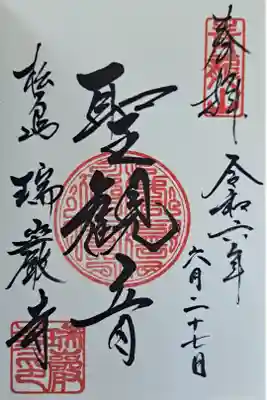 奉拝
令和六年
六月二十七日
聖観音
松島
瑞巌寺